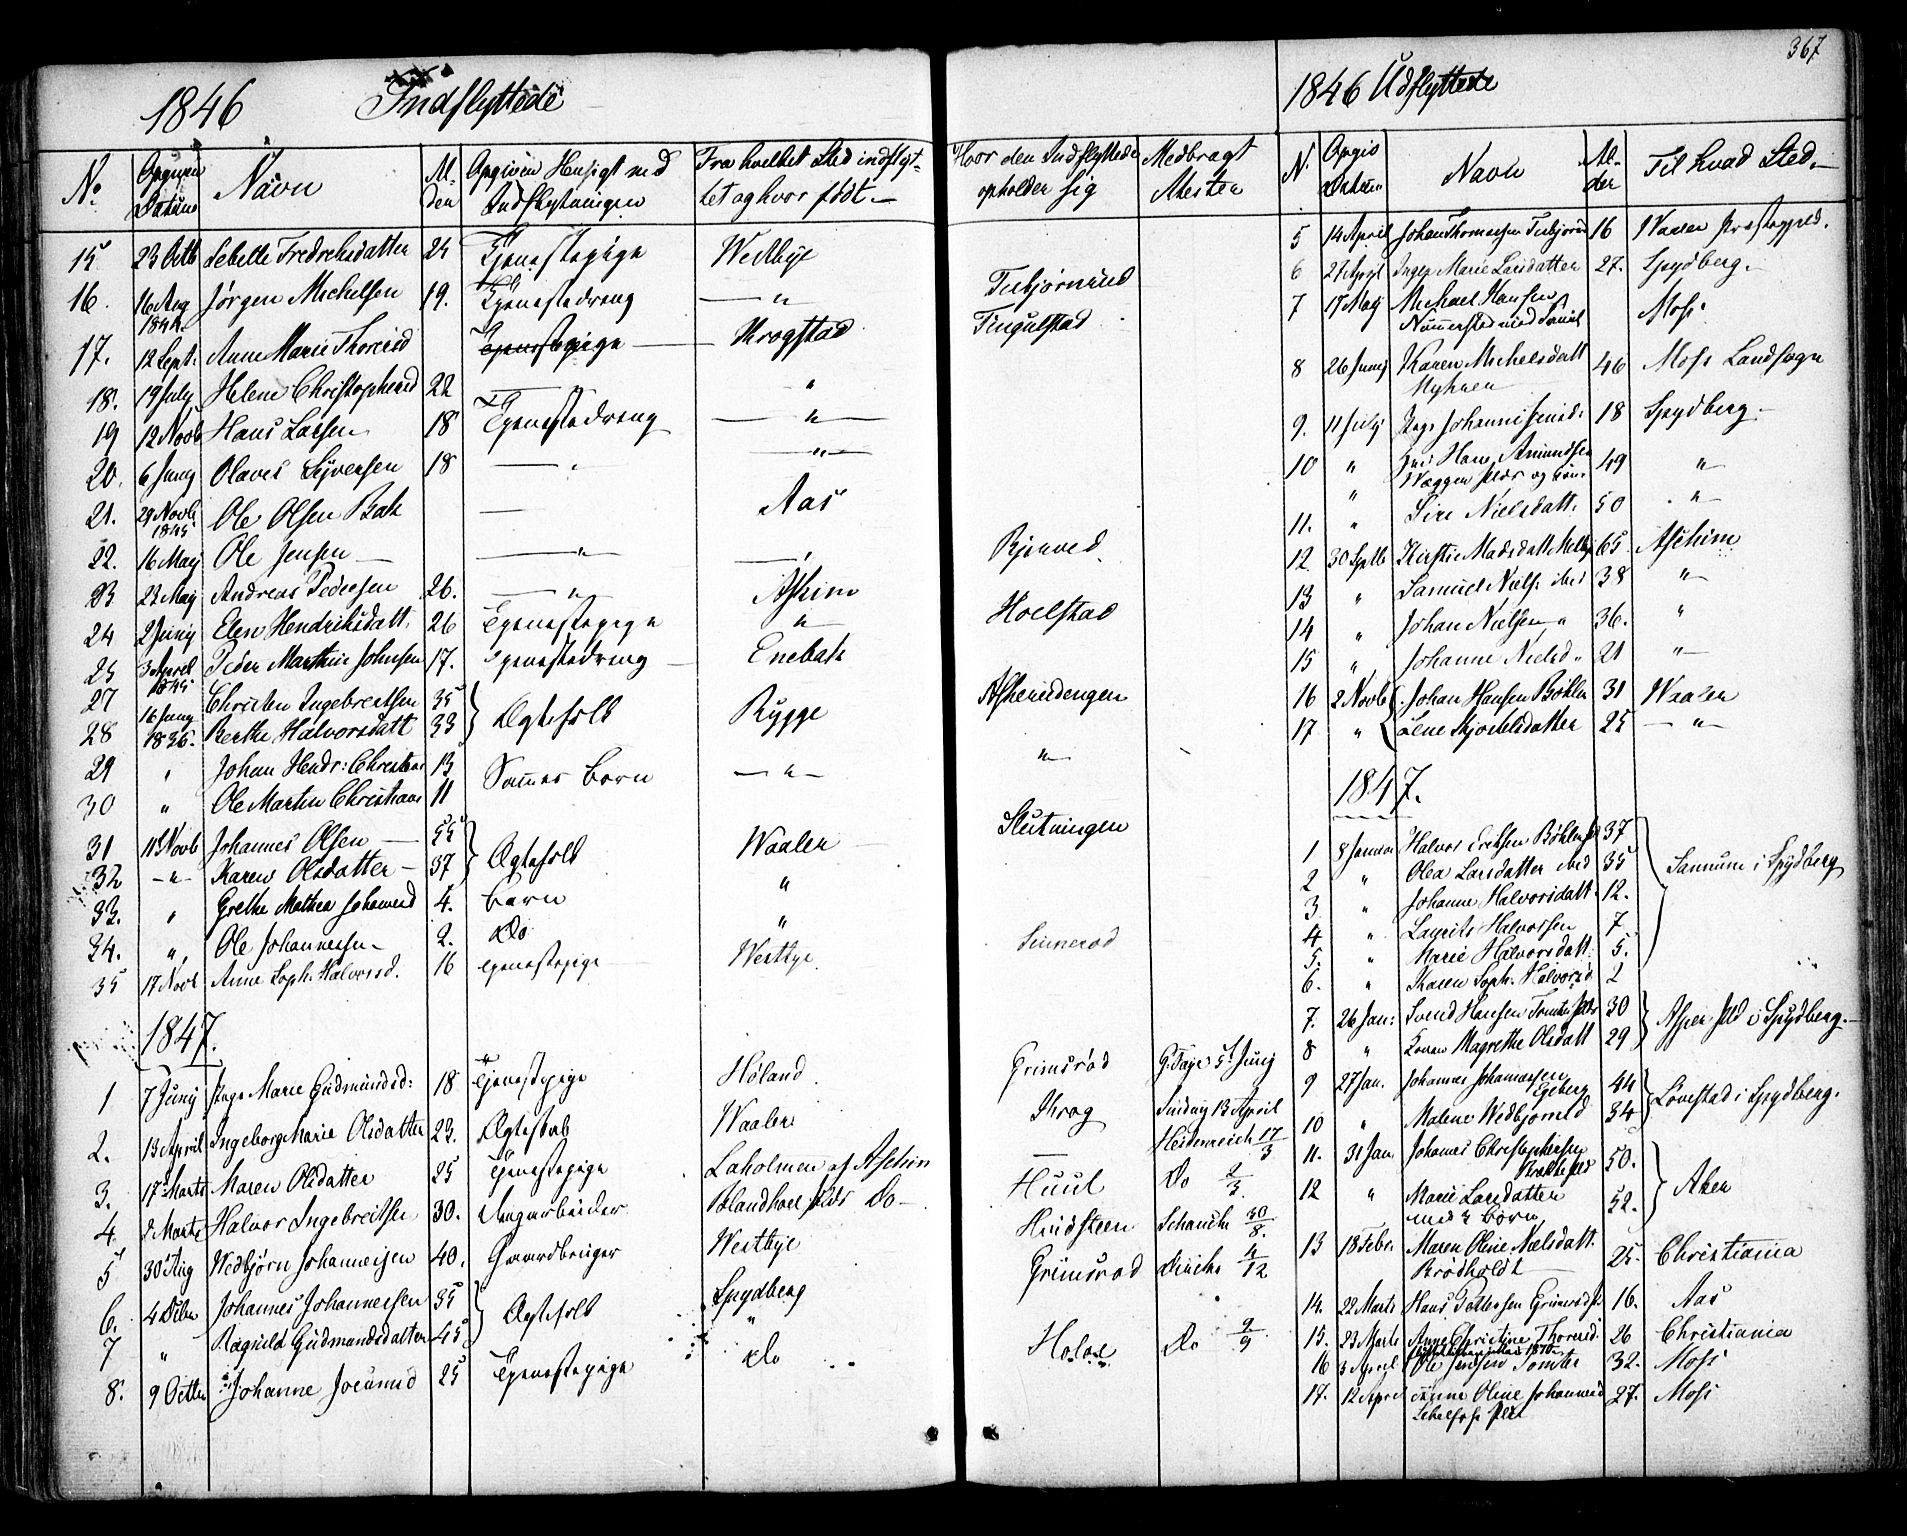 367
1846 Indflyttede
No Opgiven Datum Navn Alderen Opgiven Hensigt med Indflytningen Fra hvilket Sted indflyttet og hvor født. Hvor den Indflyttede opholder sig Medbragt Attester
15 23 Octb Lebelle Fredriksdatter 24 Tjenestepige Westbye
16. 16 Aug 1844 Jørgen Michelsen 19. Tjenestedreng — " — Tubjørnrud
17. 12 Sept: Anne Marie Thoresd Tjenestepige Krogstad Tingulstad
18. 19 July Helene Christophersd 22 — "
19 12 Novb Hans Larsen 18 Tjenestedreng — " —
20. 6 Juny Olaves Syversen 18 — — " —
21. 29 Novb 1845 Ole Olsen Bak — Aas
22. 16 May Ole Jensen — — " — — Bjerved
23 23 May Andreas Pedersen 26. — " — Askim
24 2 Juny Elen Hendriksdatt. 26 Tjenestepige — " — Hoelstad
25 3 April 1845 Peder Marthin Johnsen 17. Tjenestedreng Enebak
27 16 Juny 1836. Christen Ingebretsen 35 Ægtefolk Rygge Askerudengen
28 Berthe Halvorsdatt 33
29 " Johan Hendr: Christens 13 Sammes Børn — " — — " —
30 " Ole Martin Christians 11
31 11 Novb Johannes Olsen — 55 Ægtefolk Waaler Slutningen
32 — " — Karen Olsdatter — 37
33. " Grethe Mathea Johannesd 4. Barn "
34. " Ole Johannesen 2. Do "
35 17 Novb Anne Soph: Halvorsd. 16 Tjenestepige Westbye Sinnerød
1847.
1 7 Juny Inge Marie Gudmundsd: 18 Tjenestepige Høland Grimsrød G. Faye 5t Juny
2. 13 April Ingeborg Marie Olsdatter 23. Ægteskab Waaler Krog Sinding 13 April
3. 17 Marts Maren Olsdatter 25 Tjenestepige Laholmen af Aschim — Heidenreich 17/3
4 2 Marts Halvor Ingebretsen 30. Do — Huul Do 2/3.
5 30 Aug Wedbjørn Johannesen 40. Gaardbruger Westbye Hvidsteen Schanche 30/8.
6. 4 Decbr Johannes Johannessen 35 Ægtefolk Spydberg Grimsrød 4/12
7 " Ragnild Gudmundsdatter 45 "
8. 9 Octbr Johanne Joensd 25 Tjenestepige Do Holøs Do 2/9
1846 Udflyttede
N. Opgiv Datum Navn Alder Til hvad Sted.
5 14 April Johan Thomassen Tubjørnrud 16 Waaler Præstegjeld.
6 27 Apl Inger Marie Larsdatter 27. Spydberg.
7 17 May Michael Hansen Nummerstad med Familie Moss
8 26 Juny Karen Michelsdatt Myhren 46 Moss Landsogn
9. 11 July Inge Johannesensd: 18 Spydberg
10 " Hans Amundsen Wæggen 49 "
11. " Siri Nielsdatt. 50 "
12 30 Septb Kirstie Madsdatt Melby 65 Aschim
13 " Samuel Niels: ibid 38 "
14 " Johan Nielsen " 36. "
15 " Johanne Nielsd " 21 "
16 2 Novb Johan Hansen Bøhler 31 Waaler
17 " Lene Kjostelsdatter 25 — " —
1847.
1 8 Januar Halvor Eriksen Bøhler 37 Sannum i Spydberg
2 " Olea Larsdatter ibid 35
3 " Johanne Halvorsdatt. 12.
4 " Laurits Halvorsen 7
5. " Marie Halvorsdatt. 5.
6. " Karen Soph. Halvorsd. 2
7. 26 Jan: Svend Hansen Tomter 30 Asper Pld i Spydberg.
8 " Karen Magrethe Olsdatt 29
9 27 Jan. Johannes Johannessen Egeberg 44 Løvestad i Spydberg.
10 " Malene Wedbjørnsd 34
11. 31 Jan. Johannes Christophersen 50. Aker
12 " Marie Larsdatter med 2 Børn 52.
13 18 Febr. Maren Oline Nielsdatt. Brødholdt 25. Christiania
14. 22 Marts Hans Pettersen Grimsrød 16. Aas
15. 23 Marts Anne Christine Thoresd. 26 Christiania
16 3 April Ole Jensen Tomter 32. Moss
17. 12 April Anne Oline Johannesd 27. Moss